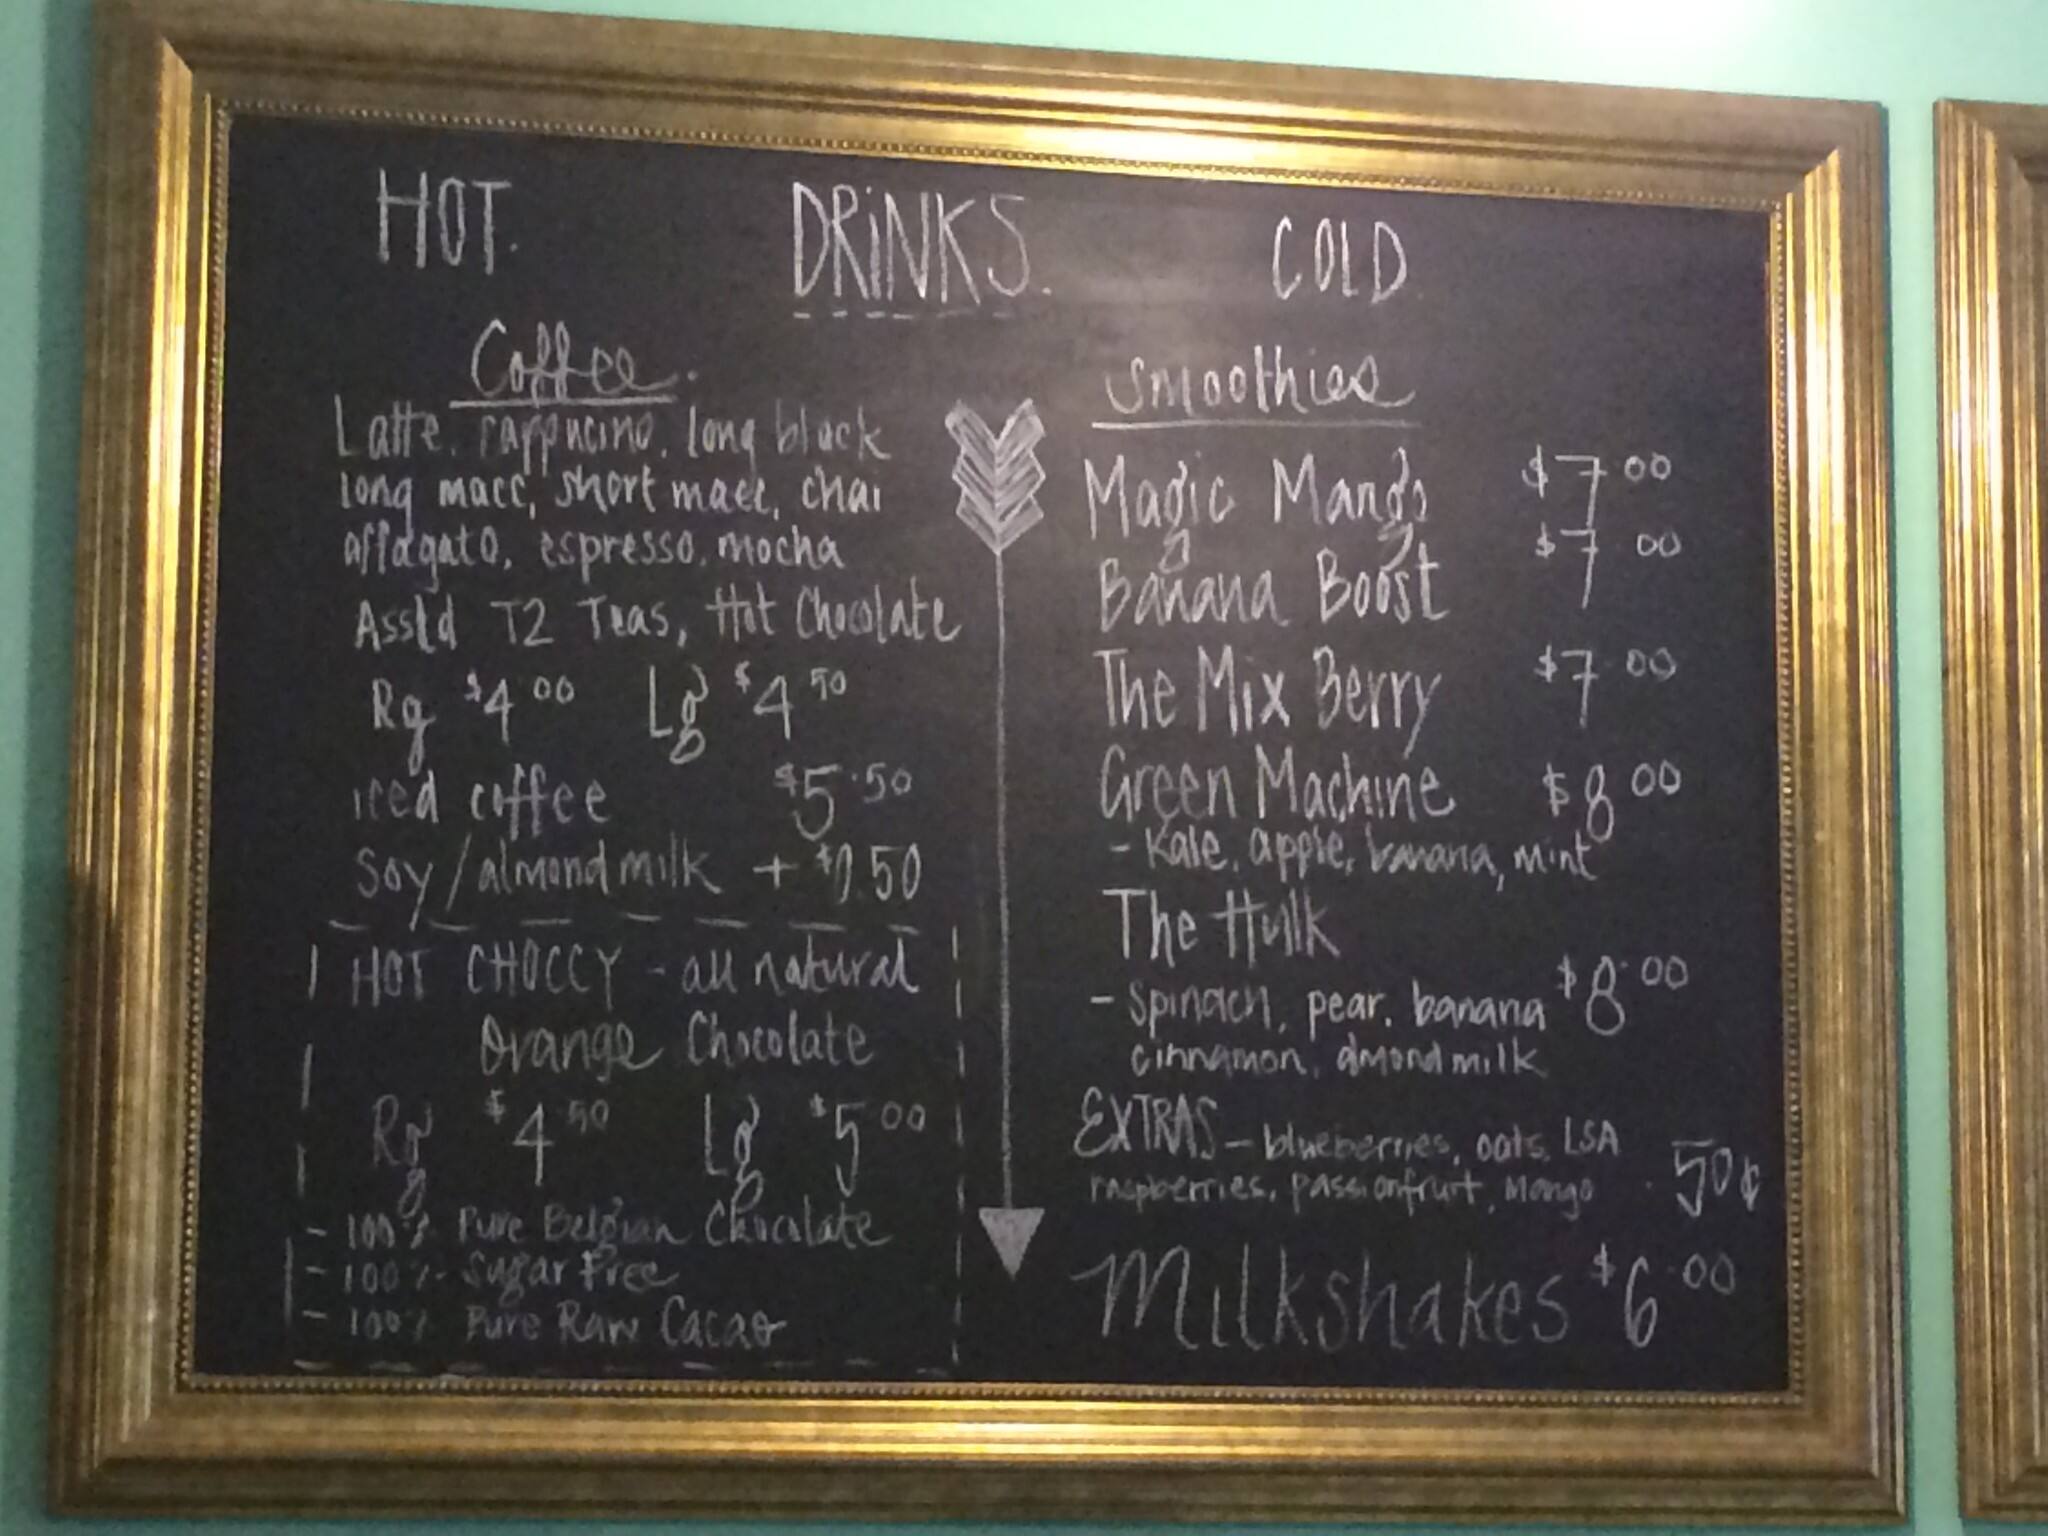 HOT. DRiNKS. COLD
Coffee.
Latte, cappucino, long black
long macc, short macc, chai
affagato, espresso, mocha
Asstd T2 Teas, Hot Chocolate
Rg $4.00 Lg $4.50
iced coffee $5.50
Soy/almond milk + $0.50
HOT CHOCCY - all natural
Orange Chocolate
Rg $4.50 Lg $5.00
- 100% Pure Belgian Chocolate
- 100% Sugar Free
- 100% Pure Raw Cacao
Smoothies
Magic Mango $7.00
Banana Boost $7.00
The Mix Berry $7.00
Green Machine $8.00
- Kale, apple, banana, mint
The Hulk
- Spinach, pear, banana $8.00
cinnamon, almond milk
EXTRAS - blueberries, oats, LSA
raspberries, passionfruit, Mango . 50¢
Milkshakes $6.00